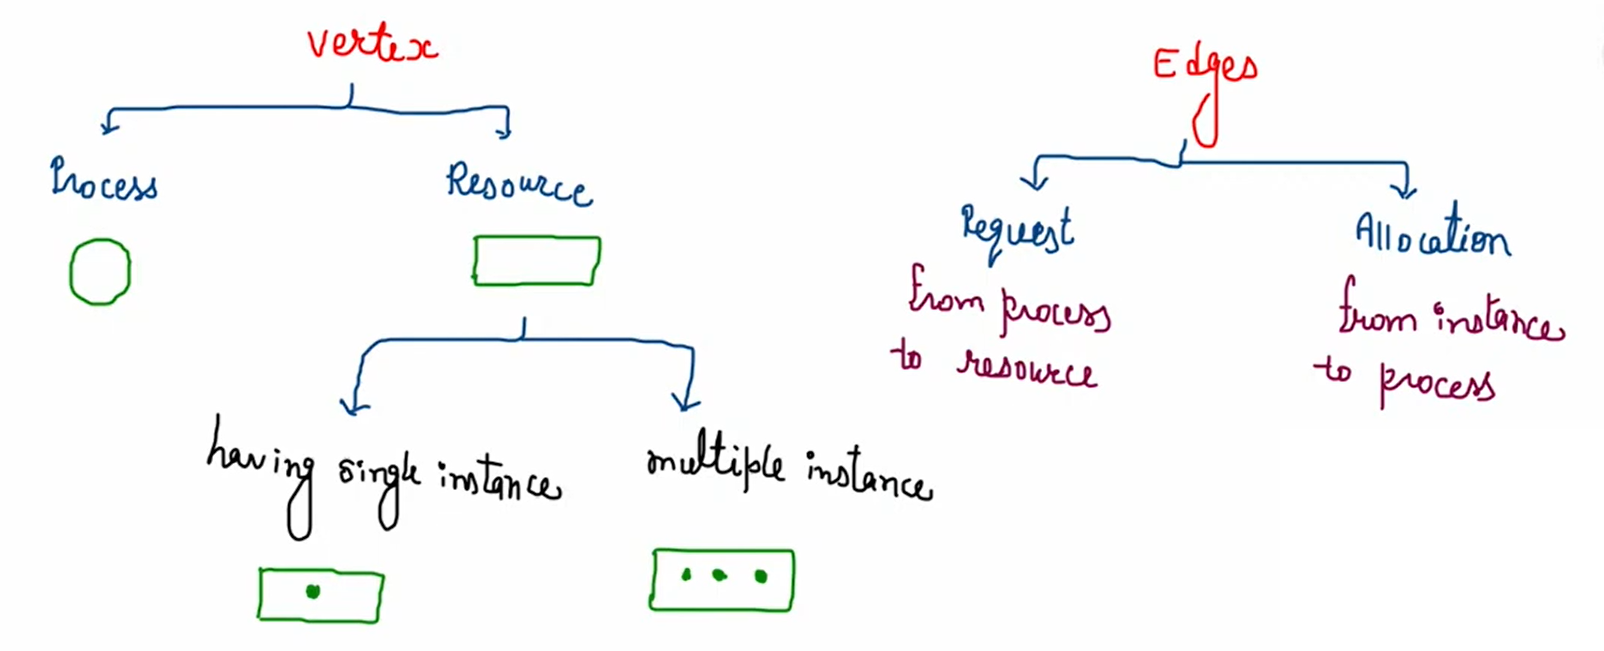 Vertex
Process
Resource
having single instance
multiple instance
Edges
Request
from process
to resource
Allocation
from instance
to process